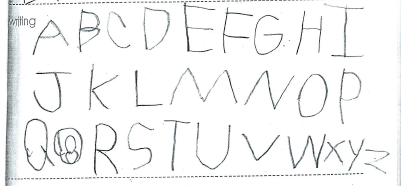 writing
A B C D E F G H I
J K L M N O P
Q R S T U V W X Y Z